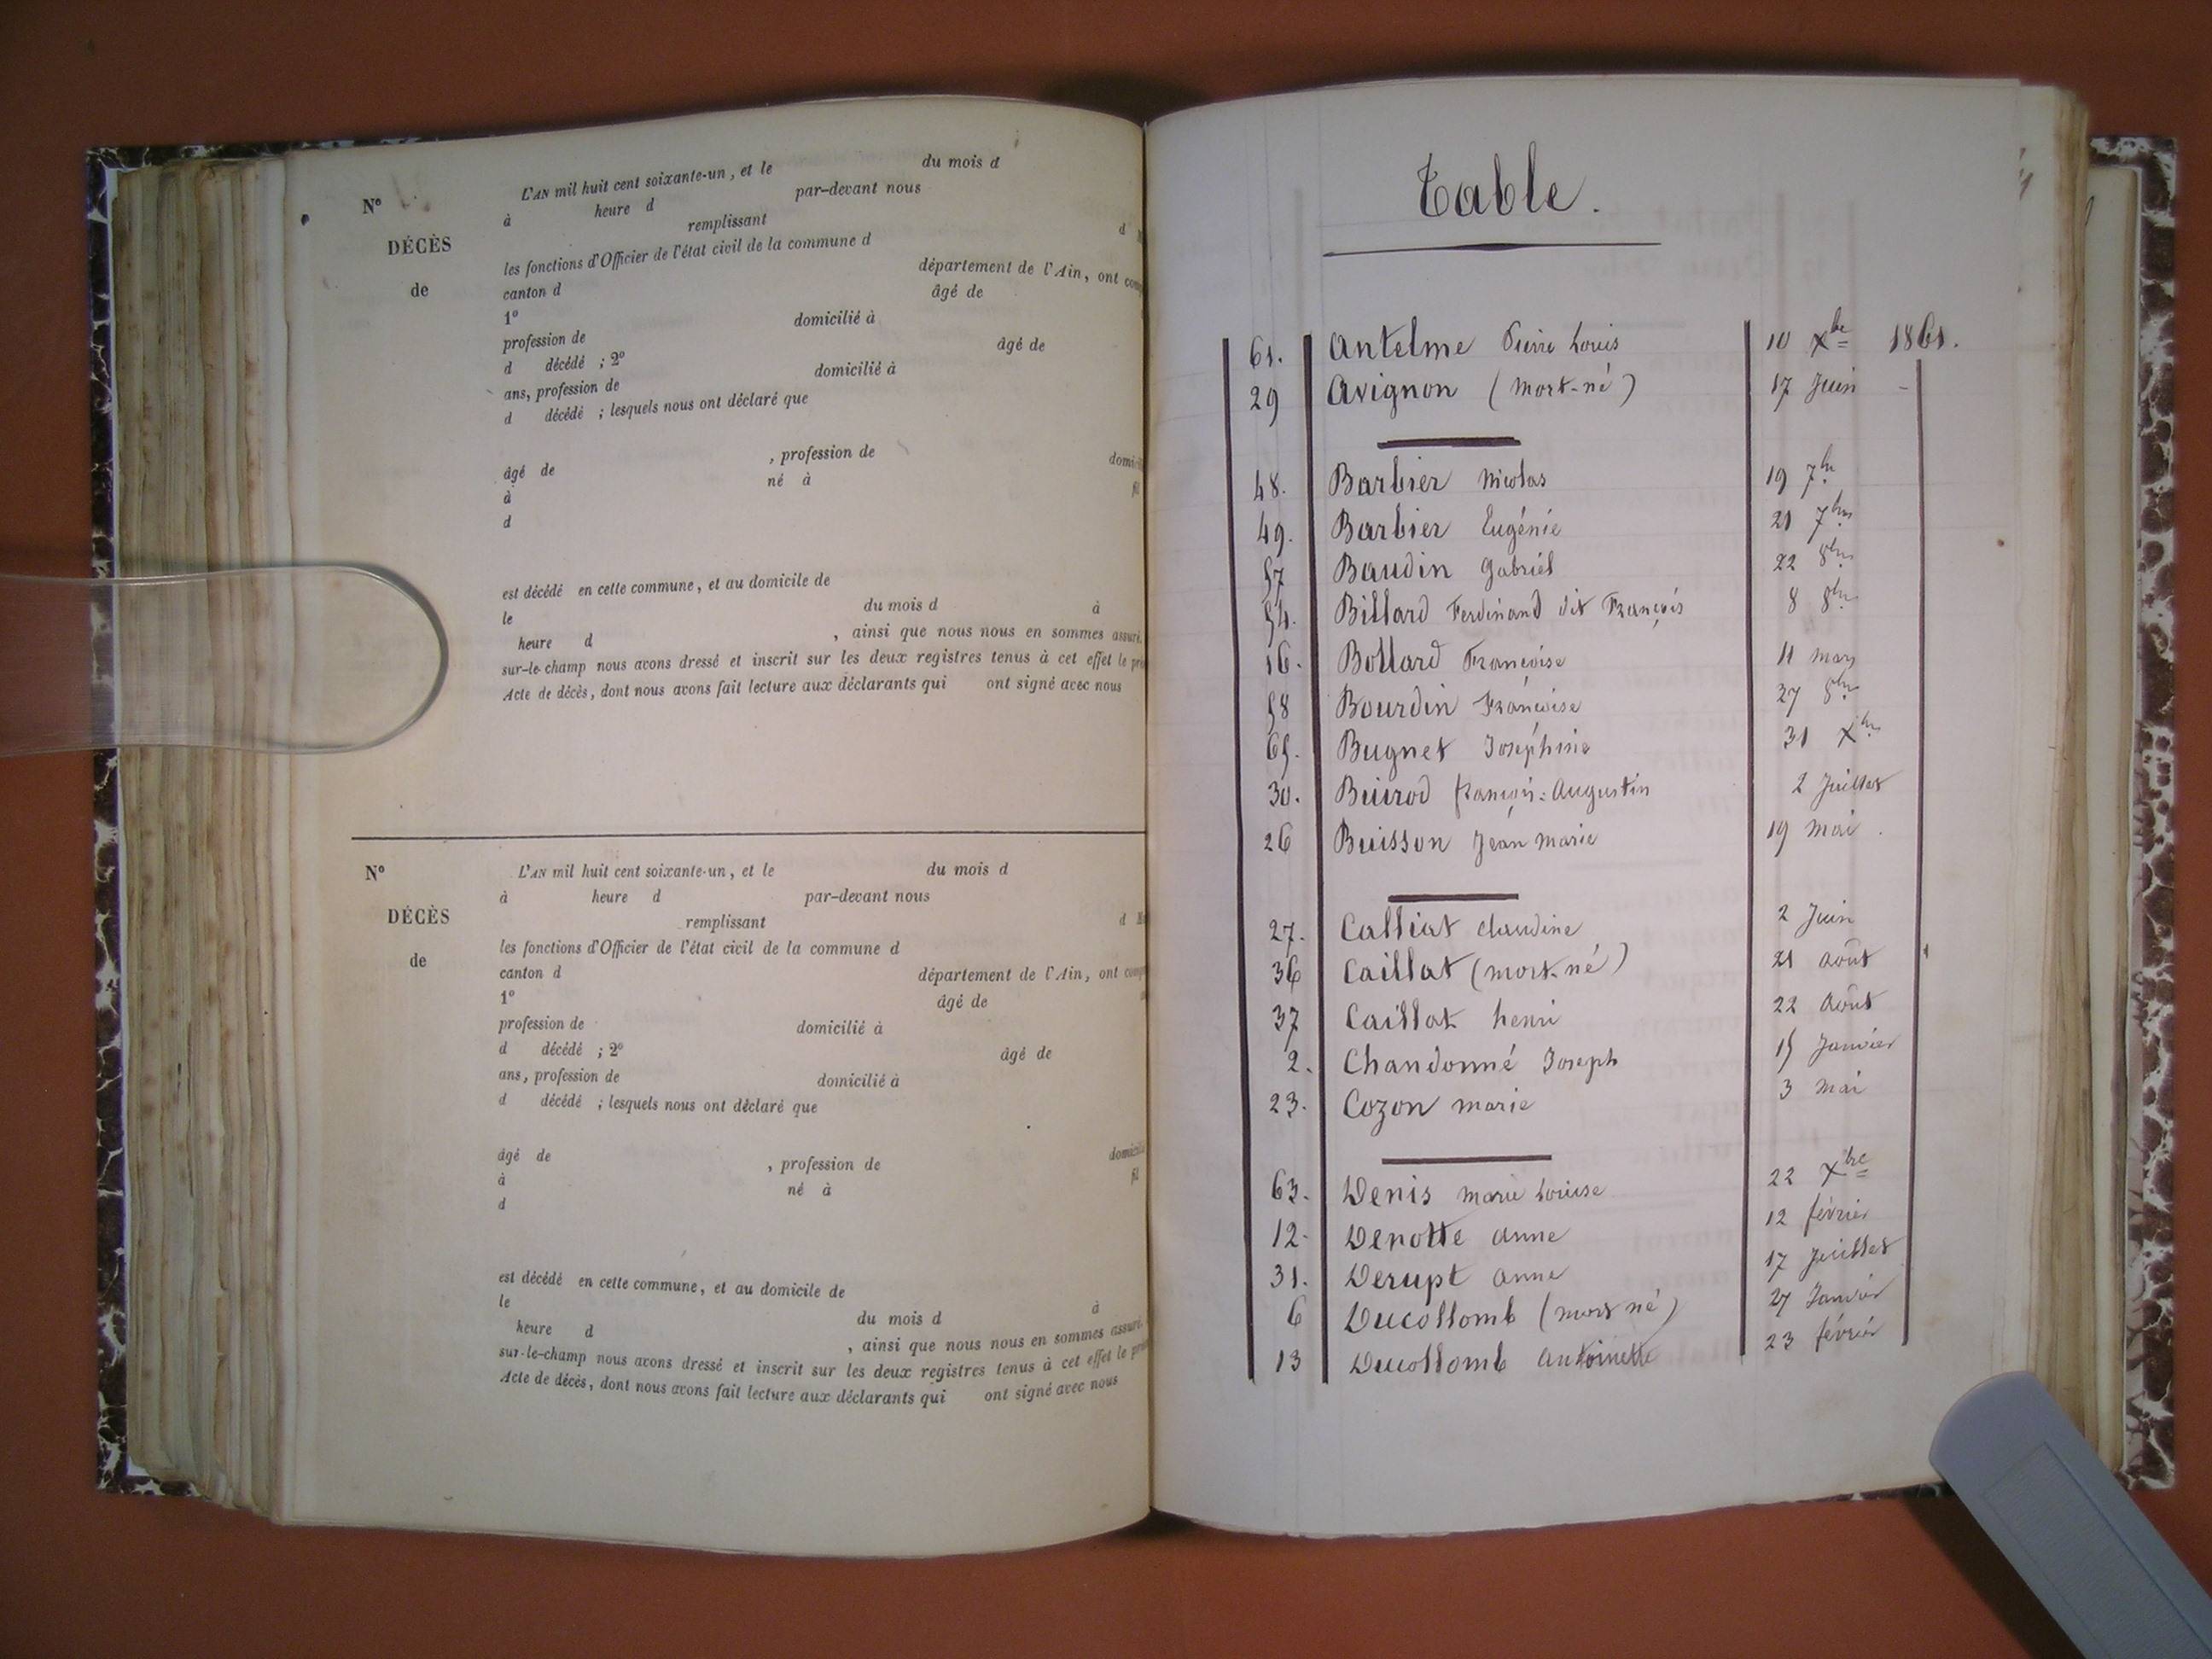 N° L'AN mil huit cent soixante-un, et le du mois d
à heure d par-devant nous
DÉCÈS remplissant d
les fonctions d'Officier de l'état civil de la commune d
de canton d département de l'Ain, ont
1° âgé de
profession de domicilié à
d décédé ; 2° âgé de
ans, profession de domicilié à
d décédé ; lesquels nous ont déclaré que
âgé de , profession de
à né à
d
est décédé en cette commune, et au domicile de
le du mois d à
heure d , ainsi que nous nous en sommes assuré.
sur-le-champ nous avons dressé et inscrit sur les deux registres tenus à cet effet le
Acte de décès, dont nous avons fait lecture aux déclarants qui ont signé avec nous
N° L'AN mil huit cent soixante-un, et le du mois d
à heure d par-devant nous
DÉCÈS remplissant d
les fonctions d'Officier de l'état civil de la commune d
de canton d département de l'Ain, ont
1° âgé de
profession de domicilié à
d décédé ; 2° âgé de
ans, profession de domicilié à
d décédé ; lesquels nous ont déclaré que
âgé de , profession de
à né à
d
est décédé en cette commune, et au domicile de
le du mois d à
heure d , ainsi que nous nous en sommes assuré.
sur-le-champ nous avons dressé et inscrit sur les deux registres tenus à cet effet le
Acte de décès, dont nous avons fait lecture aux déclarants qui ont signé avec nous
Table.
61. Antelme Pierre Louis 10 Xbe 1861.
29 Avignon (mort-né) 17 Juin -
48. Barbier Nicolas 19 7br
49. Barbier Eugénie 21 7bre
57 Baudin Gabriel 22 8bre
54. Billard Ferdinand dit François 8 8bre
16. Bollard Françoise 11 mars
58 Bourdin Françoise 27 8bre
65. Bugnet Joséphine 31 Xbre
30. Buirod françois-Augustin 2 Juillet
26 Buisson Jean Marie 19 mai.
27. Calliat claudine 2 Juin
36 Caillat (mort-né) 21 août
37 Caillat henri 22 Août
2. Chandonné Joseph 15 Janvier
23. Cozon marie 3 mai
63. Denis marie Louise 22 Xbre
12. Denotte anne 12 février
31. Derupt anne 17 Juillet
6 Ducollomb (mort né) 27 Janvier
13 Ducollomb Antoinette 23 février